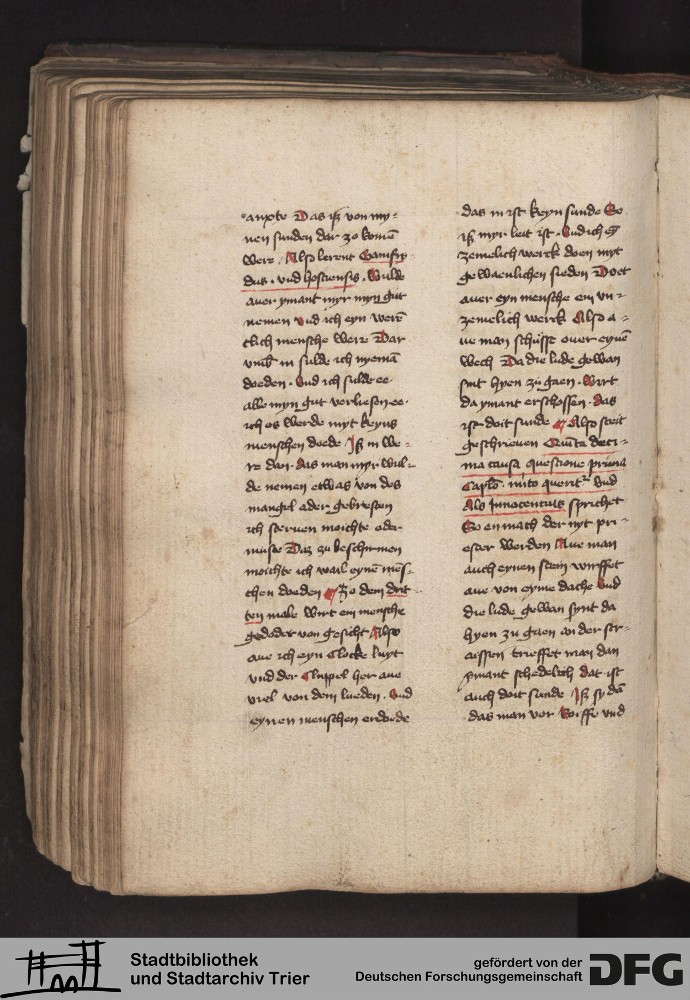 anxte Das iß von my-
nen sunden dar zo komē
were. Also lerent Gamfry
dus. vnd hostiensis. Wulde
auer ymant myr myn gut
nemen vnd ich eyn werē
tlich mensche were Dar
vmb in sulde ich nyemā
doeden. Vnd ich sulde ee
alle myn gut verliesen ee.
ich es werde myt keyns
menschen doede Iß in we-
re dan. das man myr wul-
de nemen etwas von des
mangel ader gebresten
ich steruen moichte oder
muste Daz zu beschirmen
moichte ich wail eynē mēs-
chen doeden Zo dem drit
ten male wirt ein mensche
gedodet von geschicht Also
aue ich eyn Clocke luyt
vnd der Cluppel her aue
viel von dem lueden. Vnd
eynen menschen erdoede
das in ist keyn sunde So
iß myr leit ist. Vnd ich
zemelich werck doen myt
gewaenlichen sieden Doet
auer eyn mensche ein vn-
zemelich werck Also a-
ue man schusse ouer eynē
wech Da die lude gewan
sint hyen zu gaen. Wirt
da ymant erschossen. das
ist doit sunde Also steit
geschrieuen Quīta deci-
ma causa questione prima
Caplo. inito querit Vnd
Als Innocentius sprichet
So en mach der nyt pri-
ester werden Aue man
auch eynen stein wurffet
aue von eyme dache Vnd
die lude gewan synt da
hyen zu gaen an der str-
aissen trieffet man dan
ymant schedelich dat ist
auch doit sunde Iß sy dā
das man vor Roiffe vnd
Stadtbibliothek
und Stadtarchiv Trier
gefördert von der
Deutschen Forschungsgemeinschaft
DFG